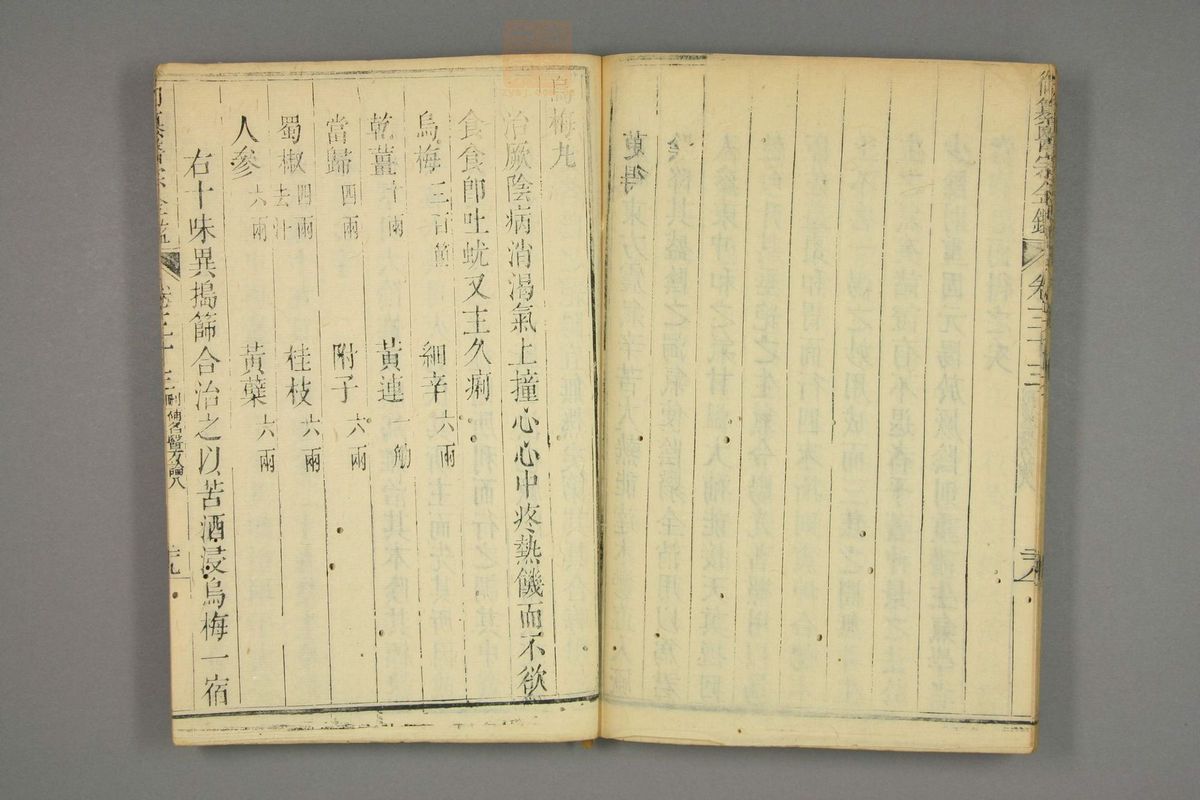 御纂醫宗金鑑 卷三十三
烏梅丸
治厥陰病消渴氣上撞心心中疼熱饑而不欲
食食即吐蚘又主久痢
烏梅三百箇 細辛六兩
乾薑十兩 黃連一觔
當歸四兩 附子六兩
蜀椒四兩去汁 桂枝六兩
人參六兩 黃蘗六兩
右十味異搗篩合治之以苦酒浸烏梅一宿
卷三十三 刪補名醫方論八